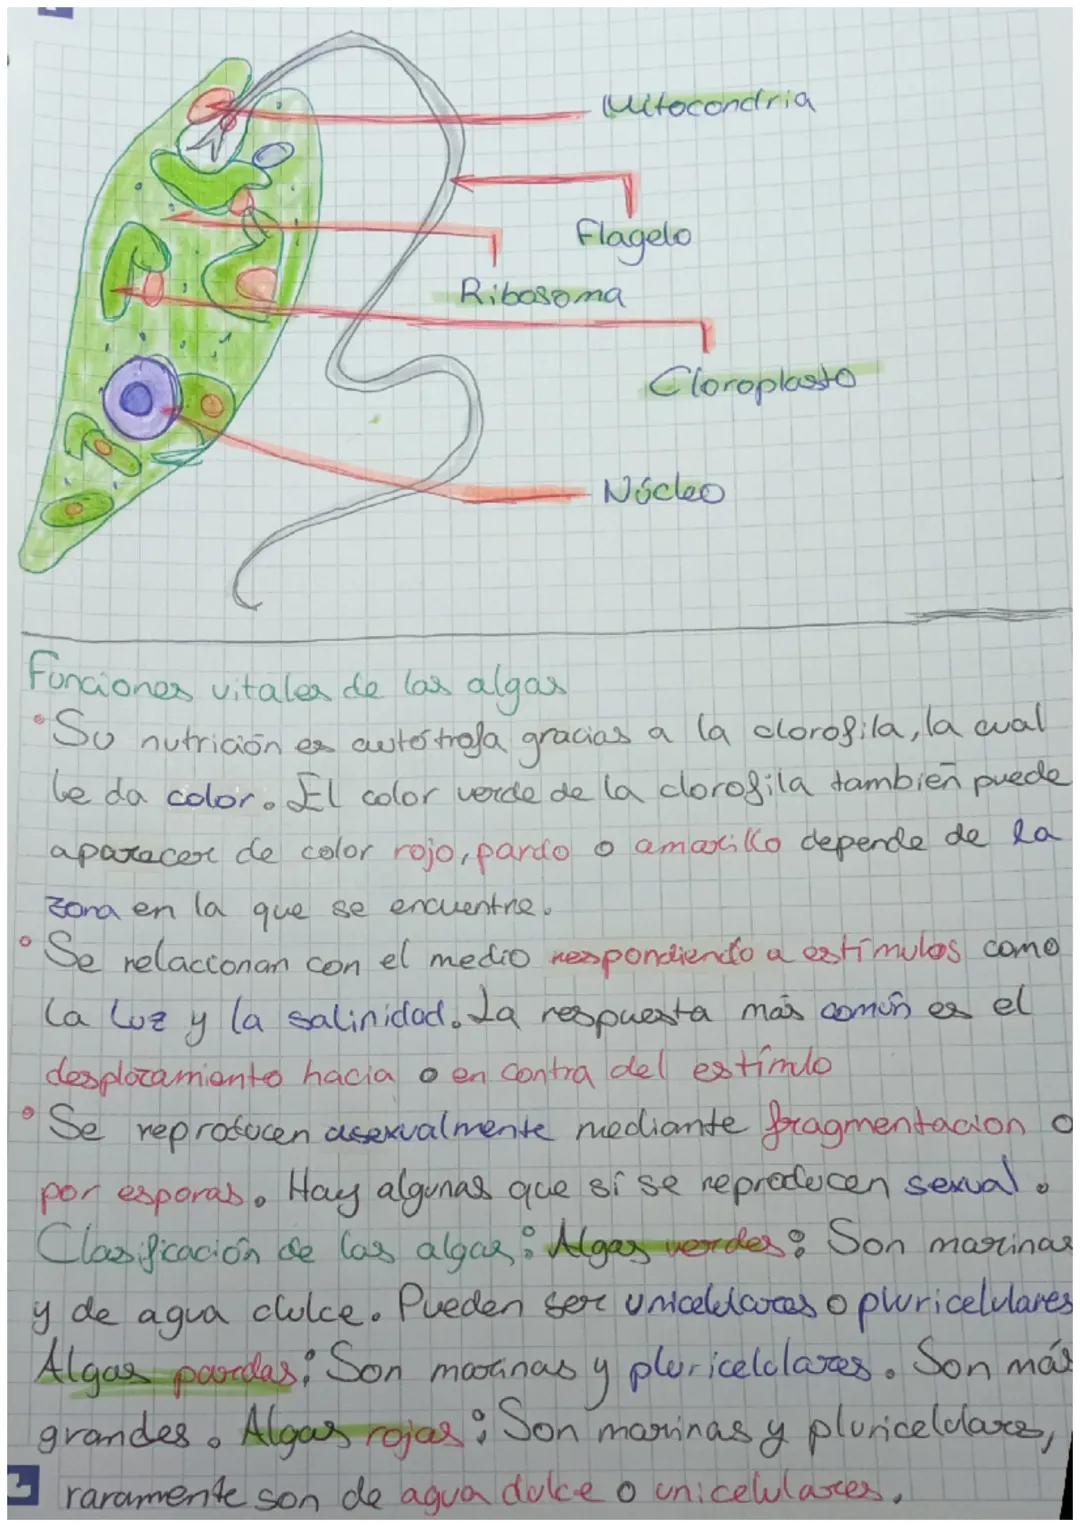 Mitocondria
Flagelo
Ribosoma
Cloroplasto
Núcleo
Funciones vitales de las algas
• Su nutrición es autótrofa gracias a la clorofila, la cual
le da color. El color verde de la clorofila también puede
aparecer de color rojo, pardo o amarillo depende de la
zona en la que se encuentre.
• Se relaccionan con el medio respondiendo a estímulos como
la luz y la salinidad. La respuesta más común es el
desplazamiento hacia o en contra del estímulo
• Se reproducen asexualmente mediante fragmentacion o
por esporas. Hay algunas que sí se reproducen sexual.
Clasificación de las algas: Algas verdes: Son marinas
y de agua dulce. Pueden ser unicelulares o pluricelulares
Algas pardas: Son marinas y pluricelulares. Son más
grandes. Algas rojas: Son marinas y pluricelulares,
raramente son de agua dulce o unicelulares.